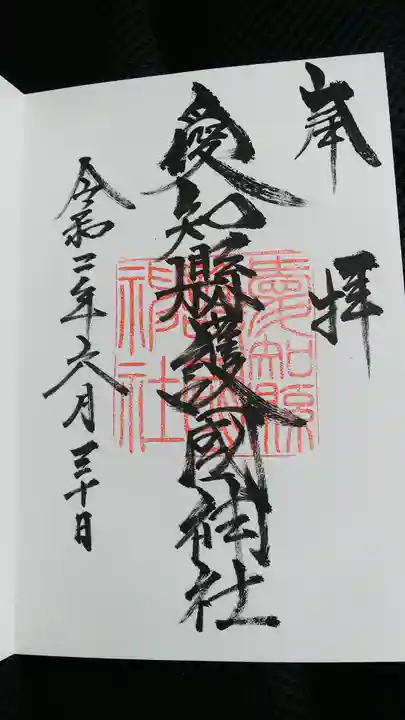 奉拝
愛知縣護國神社
令和二年六月三十日
愛知縣
神社